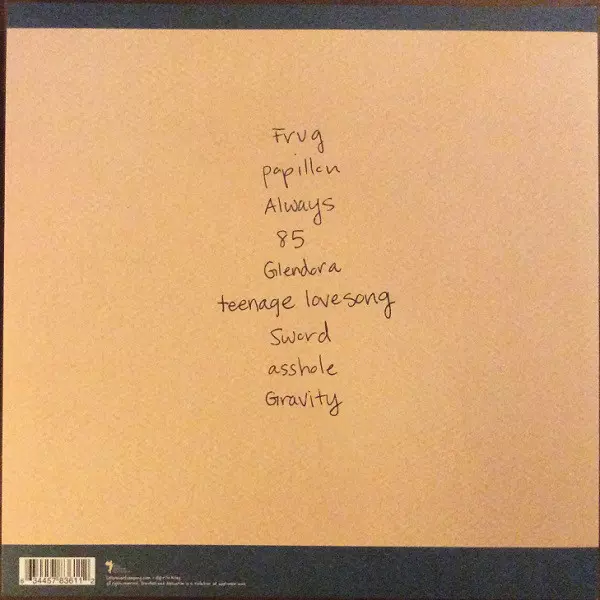 Frug
papillon
Always
85
Glendora
teenage lovesong
Sword
asshole
Gravity
6 34457 63611 2